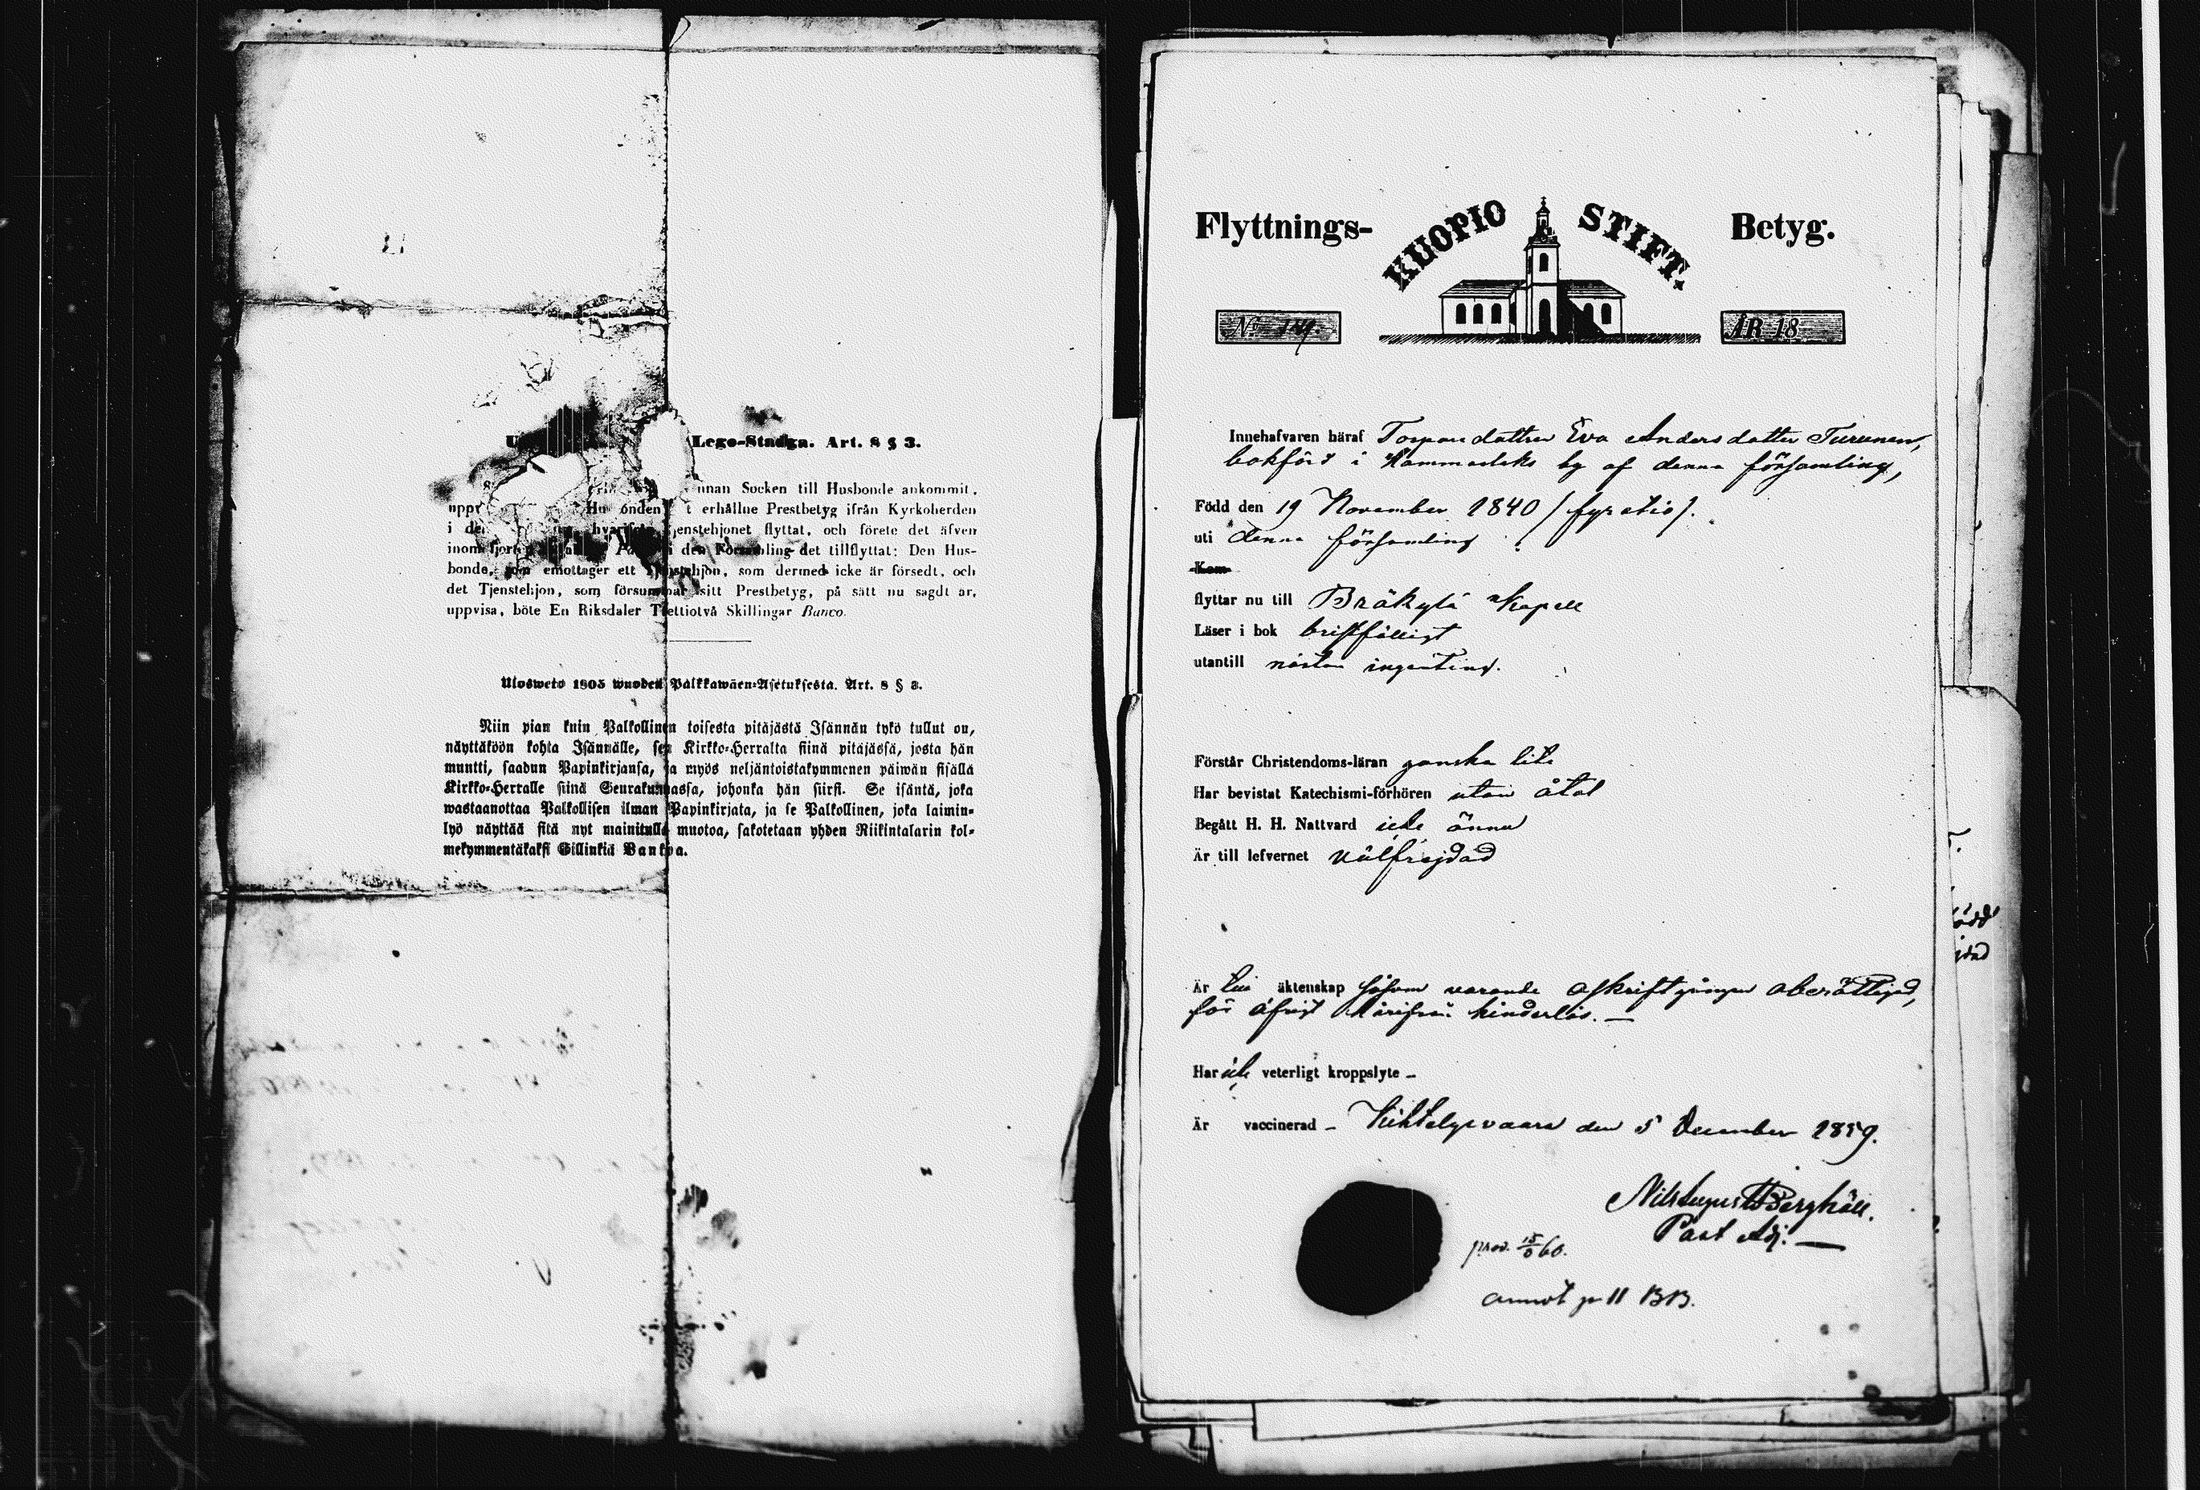 Lego-Stadga. Art. 8 § 3.
Socken till Husbonde ankommit,
erhållne Prestbetyg ifrån Kyrkoherden
i flyttat, och förete det äfven
inom den Församling det tillflyttat: Den Hus-
bonde, som emottager ett Tjenstehjon, som dermed icke är försedt, och
det Tjenstehjon, som försummar sitt Prestbetyg, på sätt nu sagdt är,
uppvisa, böte En Riksdaler Trettiotvå Skillingar Banco.
Ulosweto 1805 wuoden Palkkawäen-Asetuksesta. Art. 8 § 3.
Niin pian kuin Palkollinen toisesta pitäjästä Isännän tykö tullut on,
näyttäköön kohta Isännälle, sen Kirkko-Herralta siinä pitäjässä, josta hän
muutti, saadun Papinkirjansa, ja myös neljäntoistakymmenen päiwän sisällä
Kirkko-Herralle siinä Seurakunnassa, johonka hän siirsi. Se isäntä, joka
wastaanottaa Palkollisen ilman Papinkirjata, ja se Palkollinen, joka laimin-
lyö näyttää sitä nyt mainitulla muotoa, sakotetaan yhden Riikintalarin kol-
mekymmentäkaksi Sillinkiä Bankoa.
Flyttnings- KUOPIO STIFT. Betyg.
No ÅR 18
Innehafvaren häraf Torpardottren Eva Andersdotter Turunen,
bokförd i Hammaslaks by af denna församling,
Född den 19 November 1840 / fyratio /.
uti denna församling
Kom
flyttar nu till Bräkylä Kapell
Läser i bok bristfälligt
utantill nästan ingenting.
Förstår Christendoms-läran ganska lite
Har bevistat Katechismi-förhören utan åtal
Begått H. H. Nattvard icke ännu
Är till lefvernet välfrejdad
Är till äktenskap såsom varande oskriftgången oberättigad,
för öfrigt härifrån hinderlös. —
Har icke veterligt kroppslyte –
Är vaccinerad – Kihtelysvaara den 5 December 1859.
Nils August Berghäll.
Past Adj. —
annot p 11 BB.